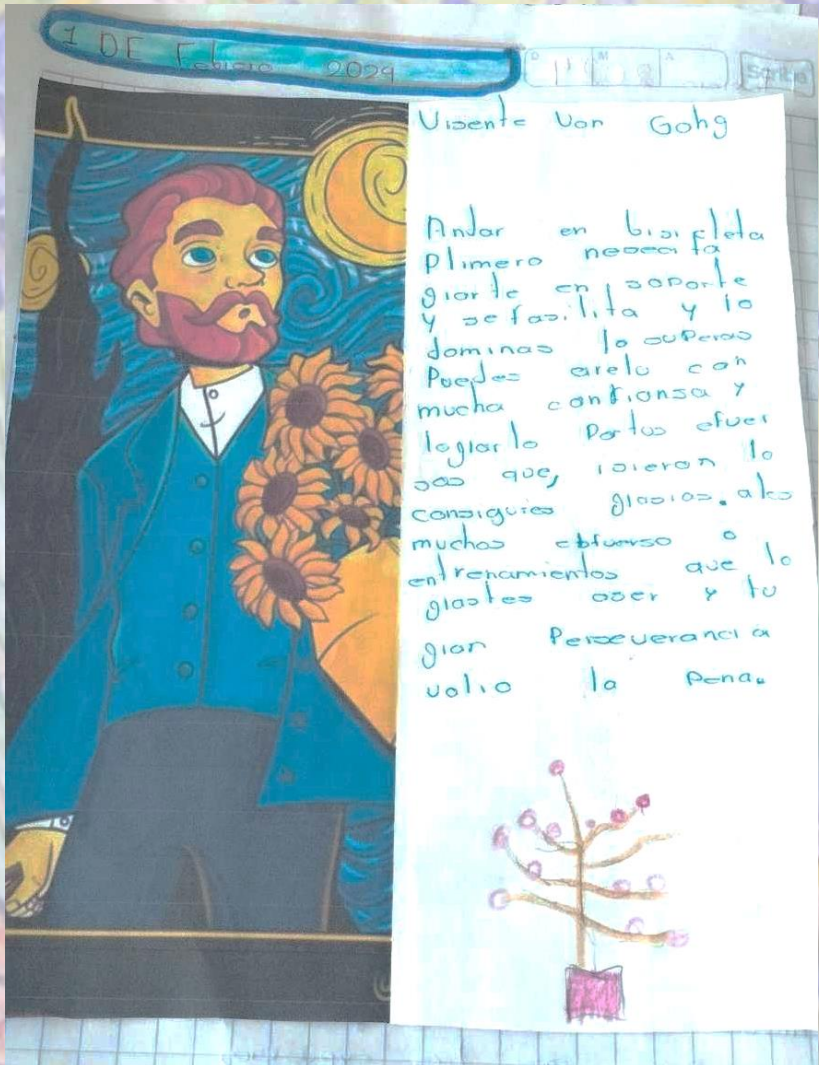 1 DE Febrero 2024
D M A
Scribe
Visente Van Gohg
Andar en bisicleta
Plimero nesesita
giarte en soporte
y se fasilita y lo
dominas lo superas
Puedes arelo con
mucha confiansa y
lograrlo Portus efuer
sos que, isieron lo
consiguies grasias. alos
muchos esfuerso o
entrenamientos que lo
grastes aser y tu
gran Perseverancia
valio la Pena.